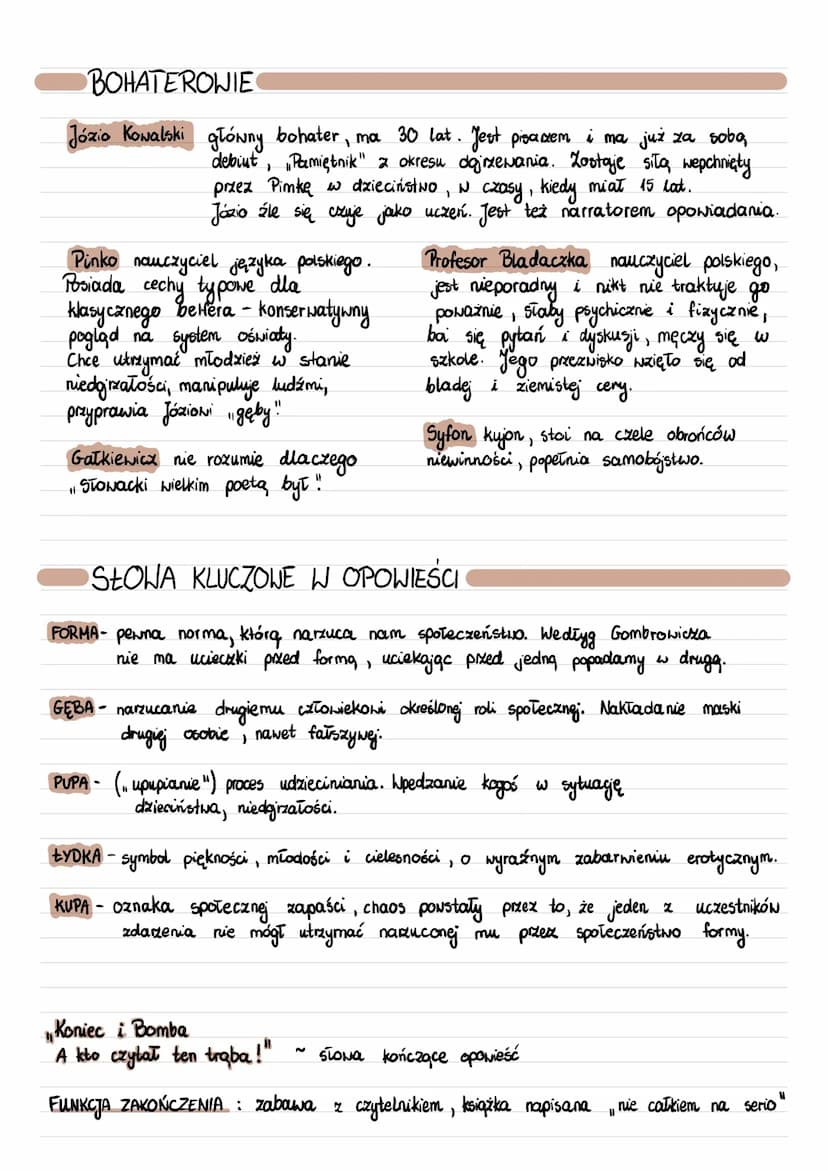 BOHATEROWIE
Józio Kowalski główny bohater, ma 30 lat. Jest pisarzem i ma już za sobą
debiut, „Pamiętnik" z okresu dojrzewania. Zostaje siłą wepchnięty
przez Pimkę w dzieciństwo, w czasy, kiedy miał 15 lat.
Józio źle się czuje jako uczeń. Jest też narratorem opowiadania.
Pinko nauczyciel języka polskiego.
Posiada cechy typowe dla
klasycznego belfera - konserwatywny
pogląd na system oświaty.
Chce utrzymać młodzież w stanie
niedojrzałości, manipuluje ludźmi,
przyprawia Józiowi „gęby".
Gałkiewicz nie rozumie dlaczego
„Słowacki wielkim poetą był".
Profesor Bladaczka nauczyciel polskiego,
jest nieporadny i nikt nie traktuje go
poważnie, słaby psychicznie i fizycznie,
boi się pytań i dyskusji, męczy się w
szkole. Jego przezwisko wzięło się od
bladej i ziemistej cery.
Syfon kujon, stoi na czele obrońców
niewinności, popełnia samobójstwo.
SŁOWA KLUCZOWE W OPOWIEŚCI
FORMA- pewna norma, którą narzuca nam społeczeństwo. Wedłyg Gombrowicza
nie ma ucieczki przed formą, uciekając przed jedną popadamy w drugą.
GĘBA - narzucanie drugiemu człowiekowi określonej roli społecznej. Nakładanie maski
drugiej osobie, nawet fałszywej.
PUPA - („upupianie") proces udziecinniania. Wpedzanie kogoś w sytuację
dzieciństwa, niedojrzałości.
ŁYDKA - symbol piękności, młodości i cielesności, o wyraźnym zabarwieniu erotycznym.
KUPA - oznaka społecznej zapaści, chaos powstały przez to, że jeden z uczestników
zdarzenia nie mógł utrzymać narzuconej mu przez społeczeństwo formy.
„Koniec i Bomba
A kto czytał ten trąba!" ~ słowa kończące opowieść
FUNKCJA ZAKOŃCZENIA : zabawa z czytelnikiem, książka napisana „nie całkiem na serio"